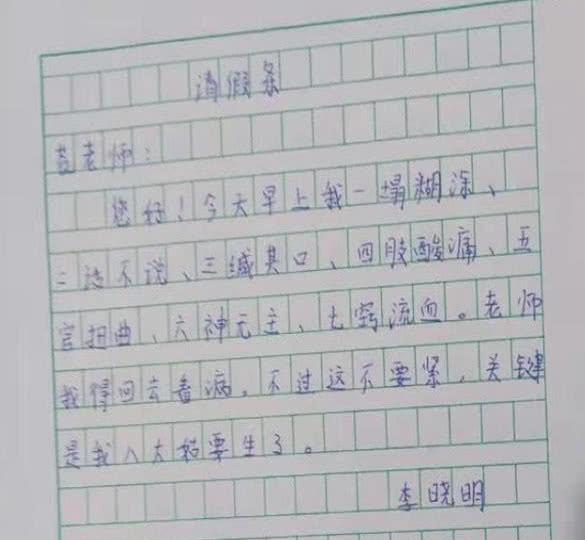 请假条
老师：
您好！今天早上我一塌糊涂、
二话不说、三缄其口、四肢酸痛、五
官扭曲、六神无主、七窍流血。老师
我得回去看病，不过这不要紧，关键
是我八大姑要生了。
李晓明